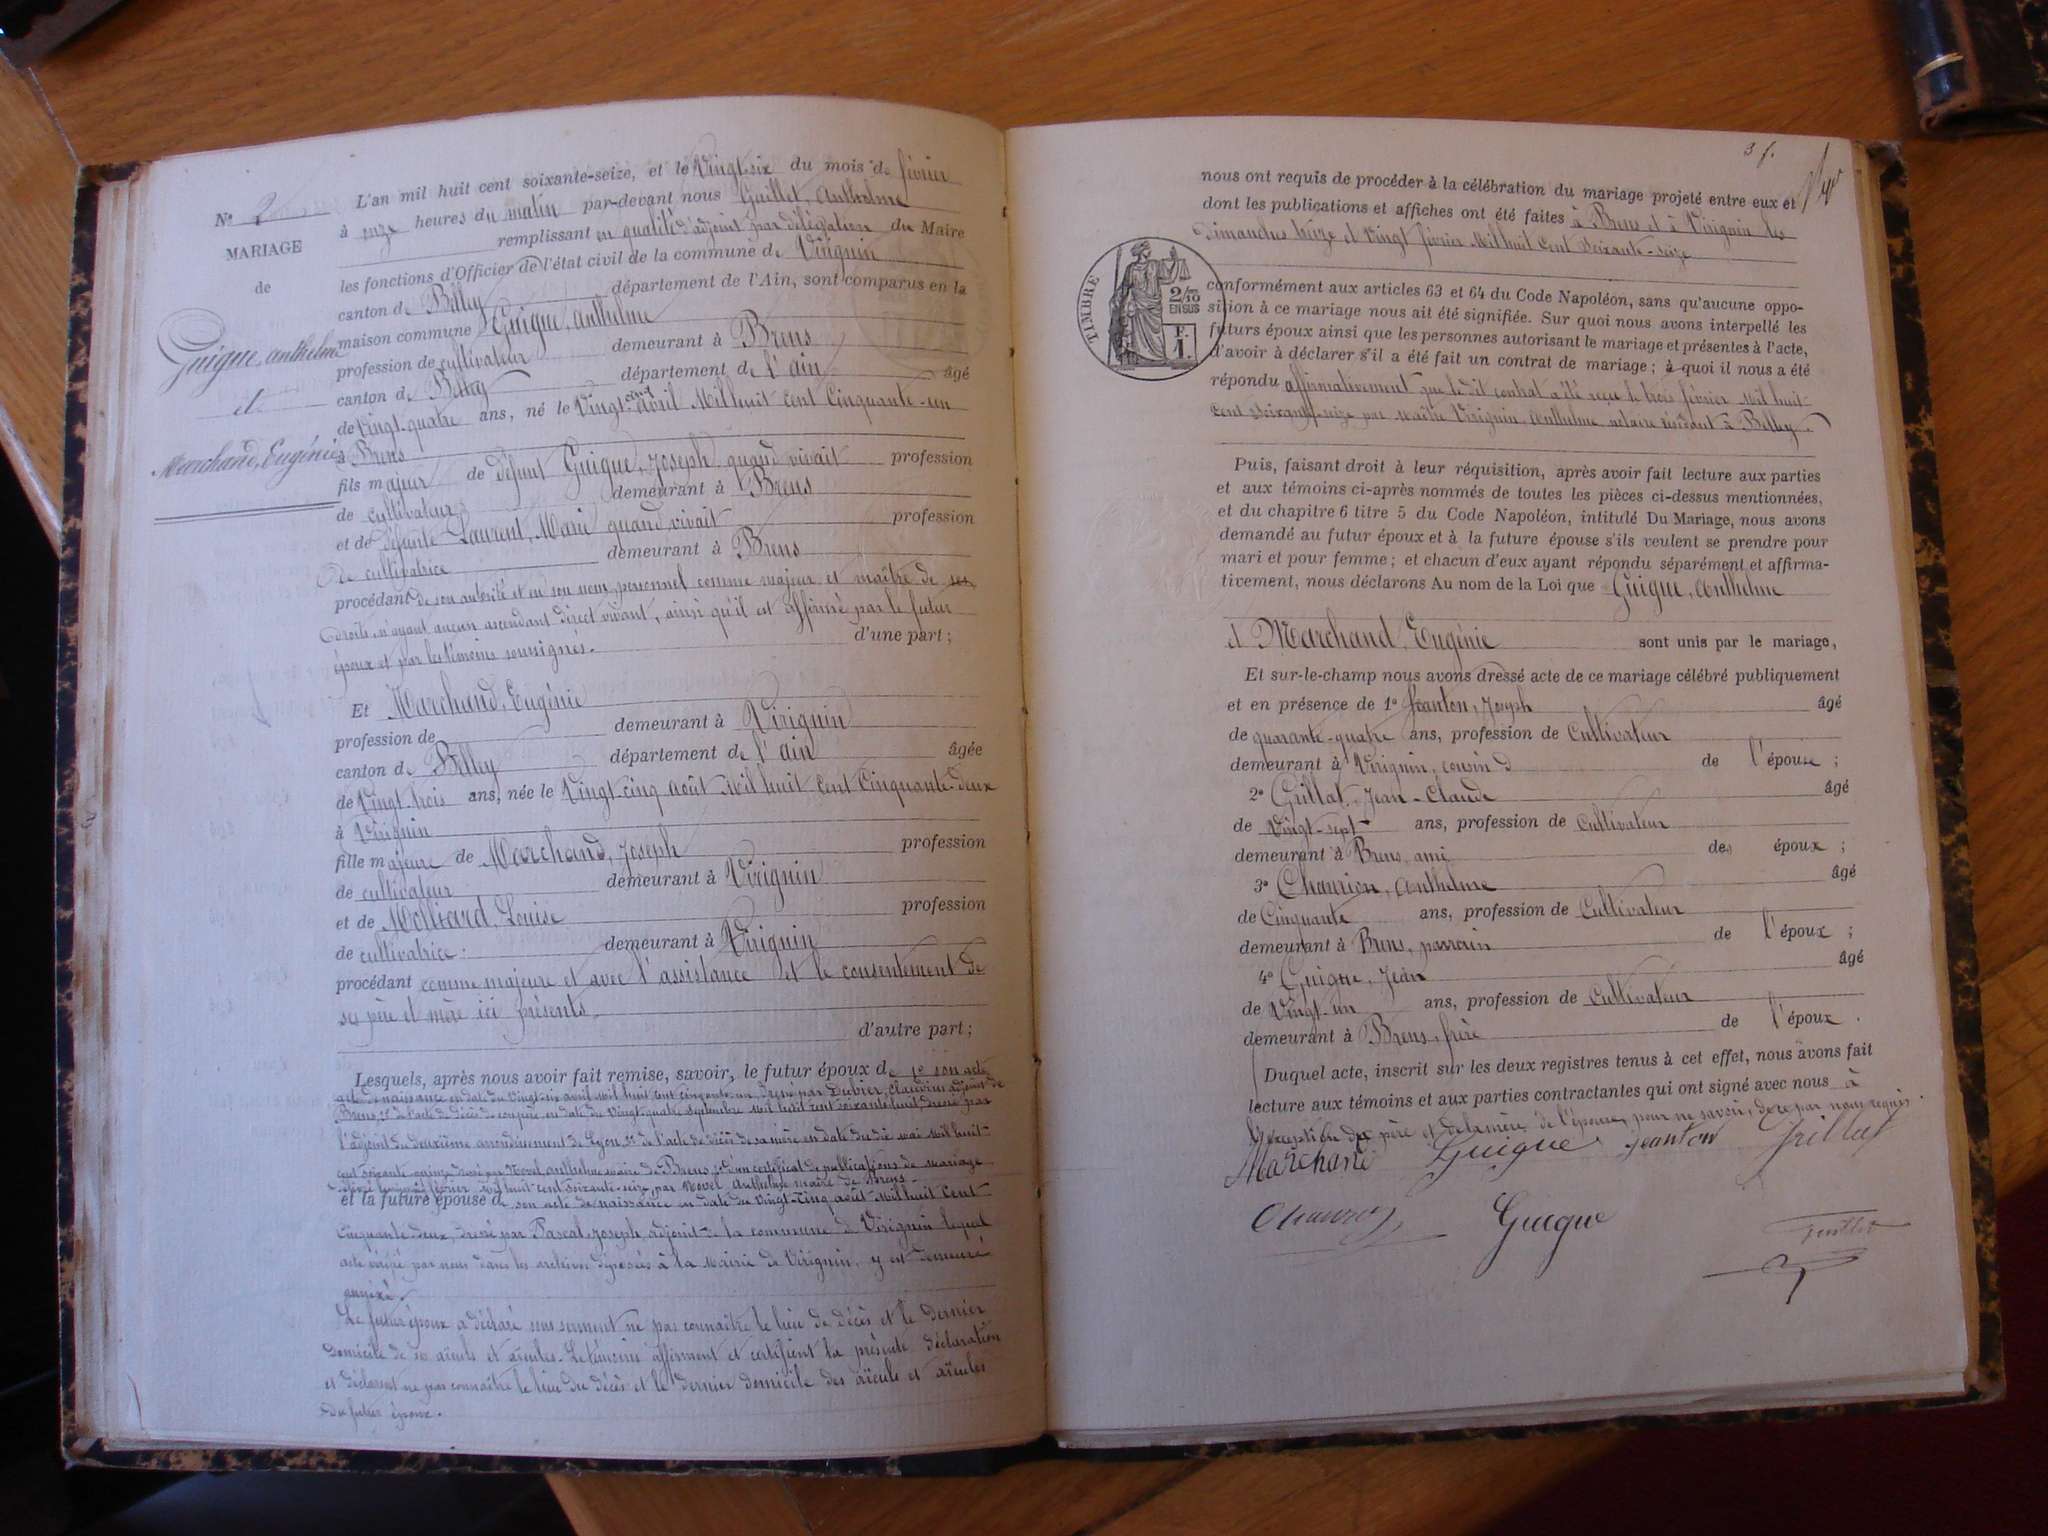 L'an mil huit cent soixante-seize, et le Vingt-six du mois de février
N° 2
à onze heures du matin par-devant nous Guillet, Anthelme
MARIAGE
remplissant en qualité d'adjoint par délégation du Maire
de
les fonctions d'Officier de l'état civil de la commune de Virignin
canton de Belley département de l'Ain, sont comparus en la
maison commune Guigue, Anthelme
Guigue, Anthelme
profession de cultivateur demeurant à Brens
canton de Belley département de l'ain âgé
et
de Vingt-quatre ans, né le Vingt-cinq avril Mil huit cent Cinquante-un
Marchand, Eugénie
à Brens
fils majeur de défunt Guigue, Joseph quand vivait profession
de cultivateur demeurant à Brens
et de défunte Laurent, Marie quand vivait profession
de cultivatrice demeurant à Brens
procédant de son autorité et en son nom personnel comme majeur et maître de ses
droits, n'ayant aucun ascendant direct vivant, ainsi qu'il est affirmé par le futur
époux et par les témoins soussignés. d'une part;
Et Marchand, Eugénie
profession de demeurant à Virignin
canton de Belley département de l'ain âgée
de Vingt-trois ans, née le Vingt-cinq août Mil huit Cent Cinquante-deux
à Virignin
fille majeure de Marchand, Joseph profession
de cultivateur demeurant à Virignin
et de Mollard, Louise profession
de cultivatrice demeurant à Virignin
procédant comme majeure et avec l'assistance et le consentement de
ses père et mère ici présents. d'autre part;
Lesquels, après nous avoir fait remise, savoir, le futur époux de 1° son acte
acte de naissance en date du Vingt-six avril Mil huit cent cinquante-un, dressé par Dubier, Claudius adjoint de
Brens, 2° de l'acte de décès de son père en date du Vingt-quatre septembre mil huit cent soixante-huit, dressé par
l'adjoint du deuxième arrondissement de Lyon, 3° de l'acte de décès de sa mère en date du dix mai Mil huit-
cent soixante-quinze dressé par Novel Anthelme maire de Brens, 4° d'un certificat de publications de mariage
février Mil huit cent soixante-seize, par Novel Anthelme maire de Brens.
et la future épouse de son acte de naissance en date du Vingt-cinq août Mil huit Cent
Cinquante-deux, dressé par Pascal, Joseph, adjoint de la commune de Virignin lequel
acte rédigé par nous dans les archives déposées à la Mairie de Virignin, y est demeuré
annexé.
Le futur époux a déclaré sous serment ne pas connaître le lieu de décès et le dernier
domicile de ses aïeuls et aïeules. Les témoins affirment et certifient la présente déclaration
et déclarent ne pas connaître le lieu du décès et le dernier domicile des aïeuls et aïeules
du futur époux.
3 f.
nous ont requis de procéder à la célébration du mariage projeté entre eux et
dont les publications et affiches ont été faites à Brens et à Virignin les
dimanches treize et Vingt février Mil huit Cent Soixante-seize
TIMBRE
2/10
EN SUS
F.
1.
conformément aux articles 63 et 64 du Code Napoléon, sans qu'aucune oppo-
sition à ce mariage nous ait été signifiée. Sur quoi nous avons interpellé les
futurs époux ainsi que les personnes autorisant le mariage et présentes à l'acte,
d'avoir à déclarer s'il a été fait un contrat de mariage; à quoi il nous a été
répondu affirmativement que le dit contrat a été reçu le trois février Mil huit-
Cent Soixante-seize par Maître Virignin, Anthelme notaire résidant à Belley.
Puis, faisant droit à leur réquisition, après avoir fait lecture aux parties
et aux témoins ci-après nommés de toutes les pièces ci-dessus mentionnées,
et du chapitre 6 titre 5 du Code Napoléon, intitulé Du Mariage, nous avons
demandé au futur époux et à la future épouse s'ils veulent se prendre pour
mari et pour femme; et chacun d'eux ayant répondu séparément et affirma-
tivement, nous déclarons Au nom de la Loi que Guigue, Anthelme
et Marchand, Eugénie sont unis par le mariage,
Et sur-le-champ nous avons dressé acte de ce mariage célébré publiquement
et en présence de 1° Jeanton, Joseph âgé
de quarante-quatre ans, profession de Cultivateur
demeurant à Virignin, cousin de l'épouse;
2° Grillat, Jean-Claude âgé
de Vingt-sept ans, profession de Cultivateur
demeurant à Brens, ami des époux;
3° Chaurion, Anthelme âgé
de Cinquante ans, profession de Cultivateur
demeurant à Brens, parrain de l'époux;
4° Guigue, Jean âgé
de Vingt-un ans, profession de Cultivateur
demeurant à Brens, frère de l'époux.
Duquel acte, inscrit sur les deux registres tenus à cet effet, nous avons fait
lecture aux témoins et aux parties contractantes qui ont signé avec nous à
l'exception du père et de la mère de l'épouse, pour ne savoir, de ce par nous requis.
Marchand Guigue Jeanton Grillat
Guigue